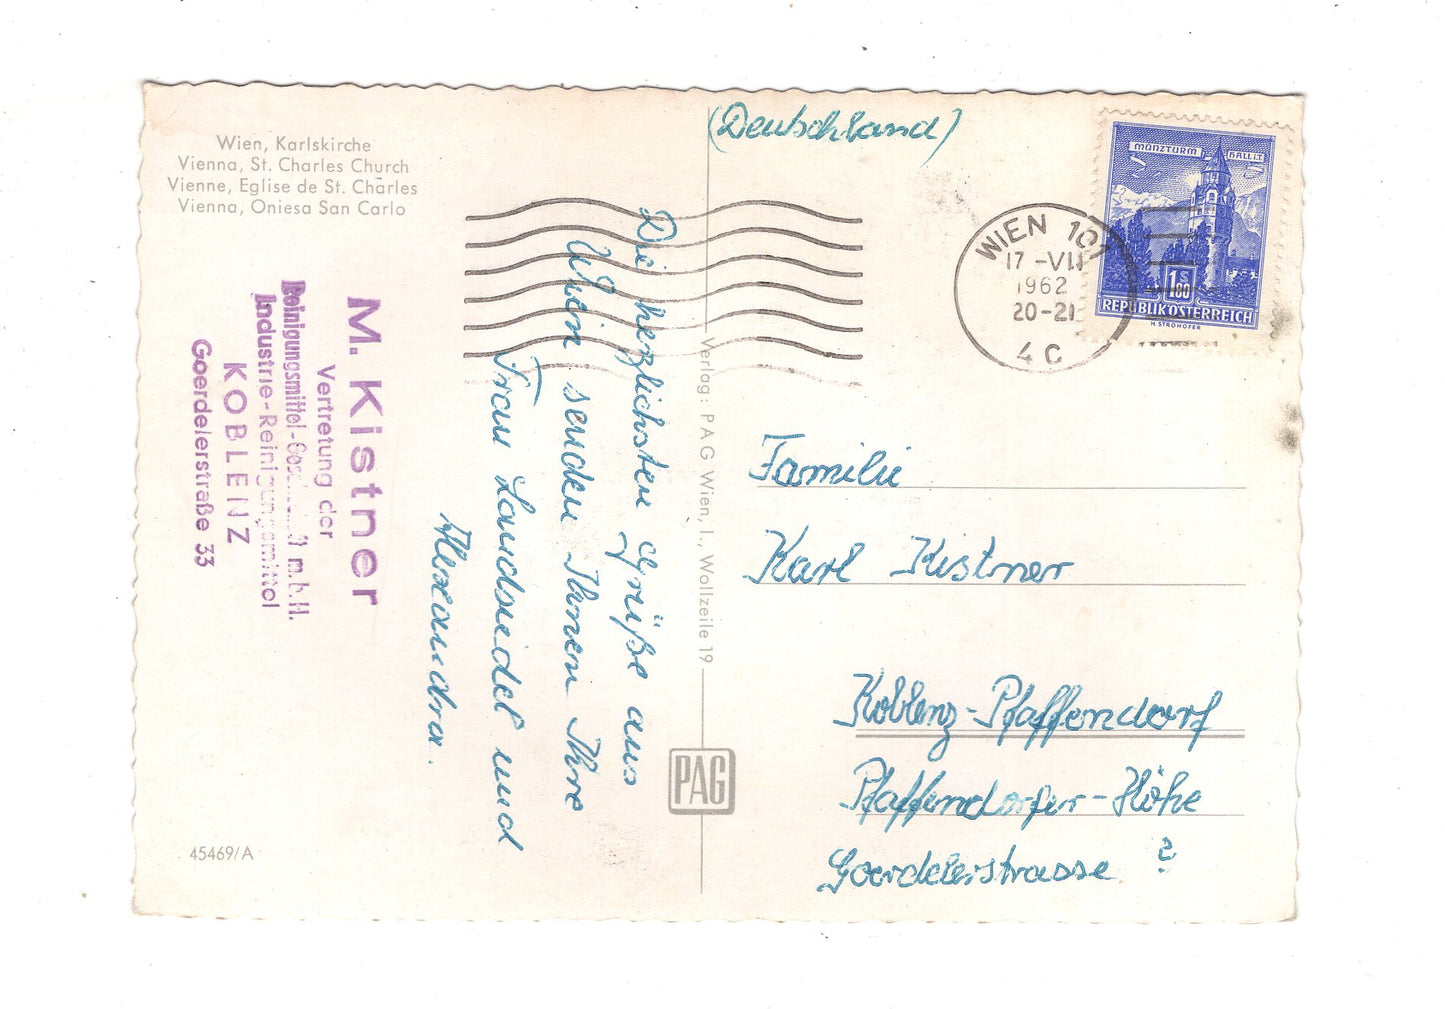 Wien, Karlskirche
Vienna, St. Charles Church
Vienne, Eglise de St. Charles
Vienna, Oniesa San Carlo
M. Kistner
Vertretung der
Reinigungsmittel-Gesellschaft m.b.H.
Industrie-Reinigungsmittel
KOBLENZ
Goerdelerstraße 33
Die herzlichsten Grüße aus
Wien senden Ihnen Ihre
Frau Landsiedel und
Alexandra.
45469/A
Verlag: PAG Wien, I., Wollzeile 19
PAG
(Deutschland)
MÜNZTURM HALL i.T.
1S
1.80
REPUBLIK ÖSTERREICH
H. STROHOFER
WIEN 101
17 -VII
1962
20-21
4c
Familie
Karl Kistner
Koblenz-Pfaffendorf
Pfaffendorfer-Höhe
Goerdelerstrasse ?